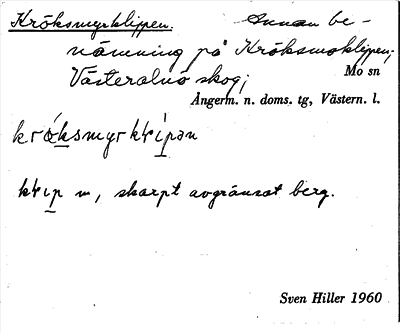 Kröksmyrklippen. Annan be-
nämning på Kröksmoklippen;
Västeralnö skog; Mo sn
Ångerm. n. doms. tg, Västern. l.
m, skarpt avgränsat berg.
Sven Hiller 1960